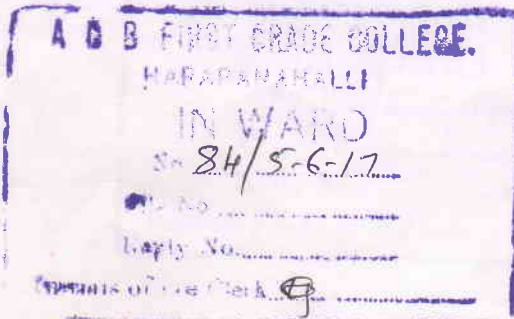 A D B FIRST GRADE COLLEGE.
HARAPANAHALLI
IN WARD
No 84/5-6-17
No
Reply No.
of the Clerk